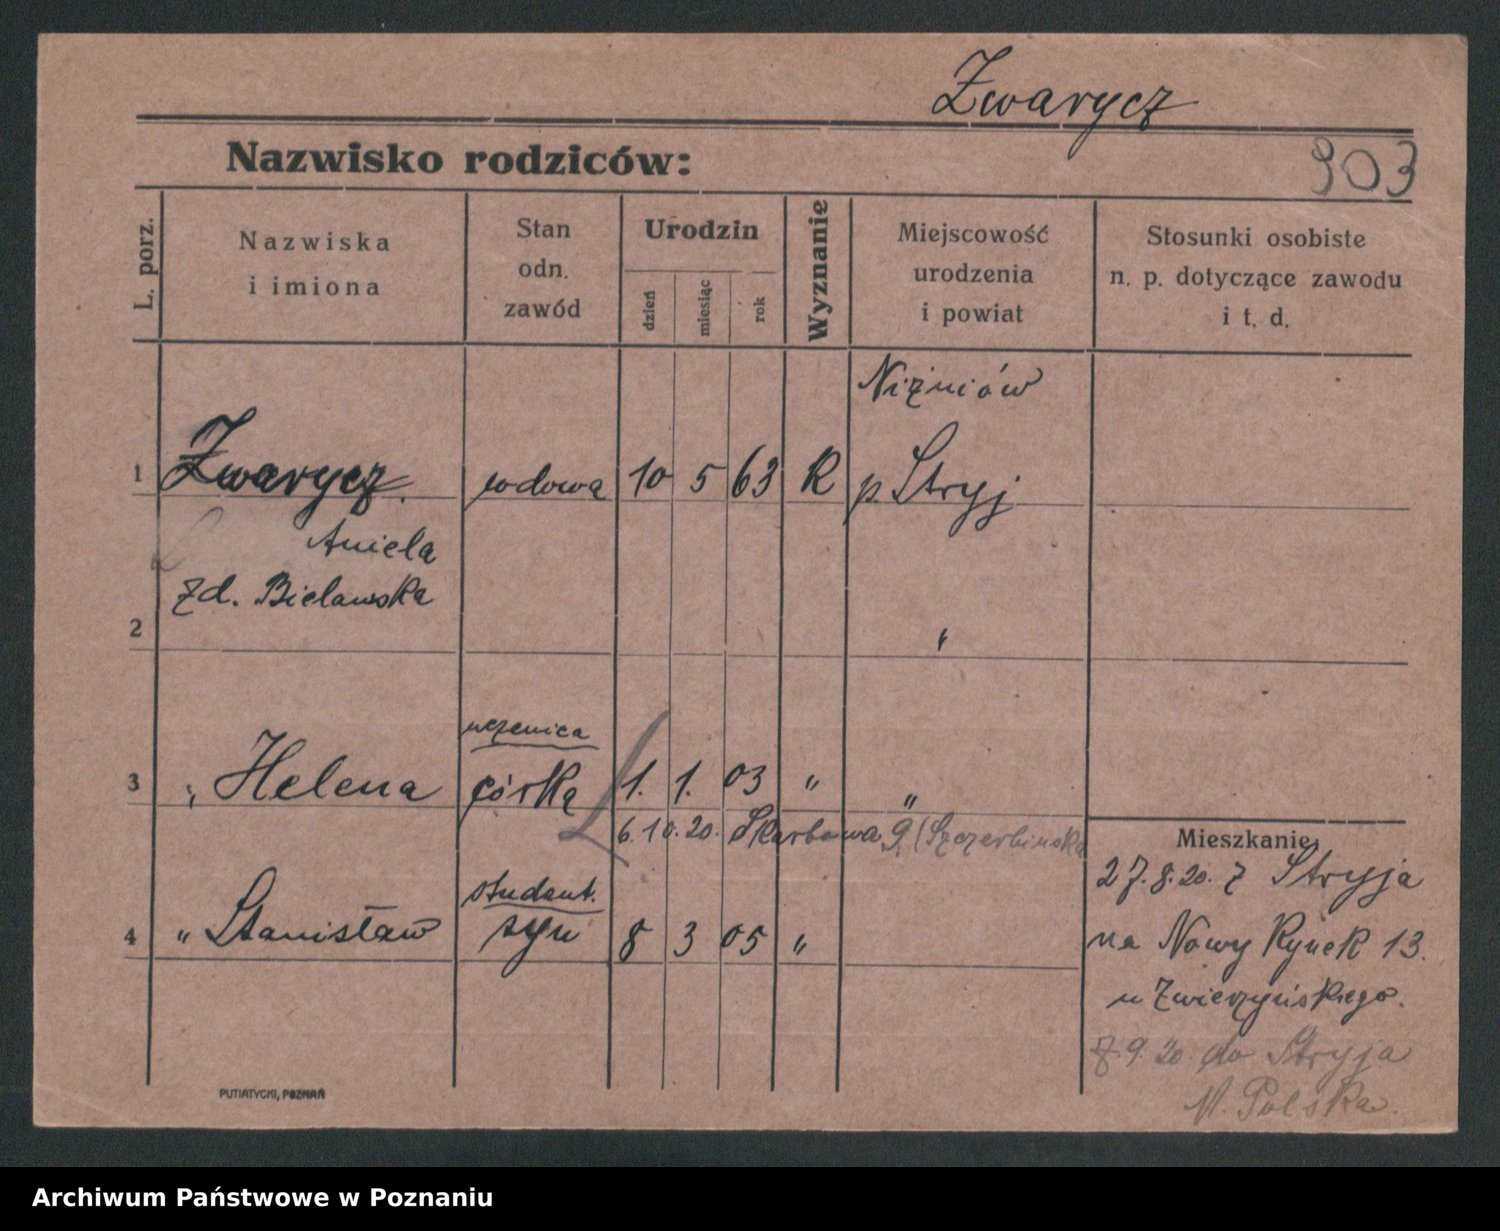 Zwarycz
Nazwisko rodziców:
903
L. porz.
Nazwiska
i imiona
Stan
odn.
zawód
Urodzin
dzień
miesiąc
rok
Wyznanie
Miejscowość
urodzenia
i powiat
Stosunki osobiste
n. p. dotyczące zawodu
i t. d.
Niżniów
1 Zwarycz wdowa 10 5 63 R p. Stryj
Aniela
zd. Bielawska
2 "
uczenica
3 " Helena córka 1. 1. 03 " "
6.10.20. Skarbowa 9 (Szczerbińska
Mieszkanie
27.8.20. z Stryja
student.
4 " Stanisław syn 8 3 05 "
na Nowy Rynek 13.
u Zwierzyńskiego.
7.9.20 do Stryja
M. Polska.
PUTIATYCKI, POZNAŃ
Archiwum Państwowe w Poznaniu